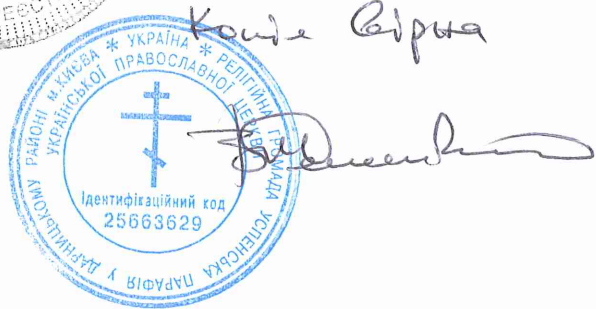 Копія Вірна
* УКРАЇНА * РЕЛІГІЙНА ГРОМАДА УСПЕНСЬКА ПАРАФІЯ У ДАРНИЦЬКОМУ РАЙОНІ м.КИЄВА
УКРАЇНСЬКОЇ ПРАВОСЛАВНОЇ ЦЕРКВИ
Ідентифікаційний код
25663629